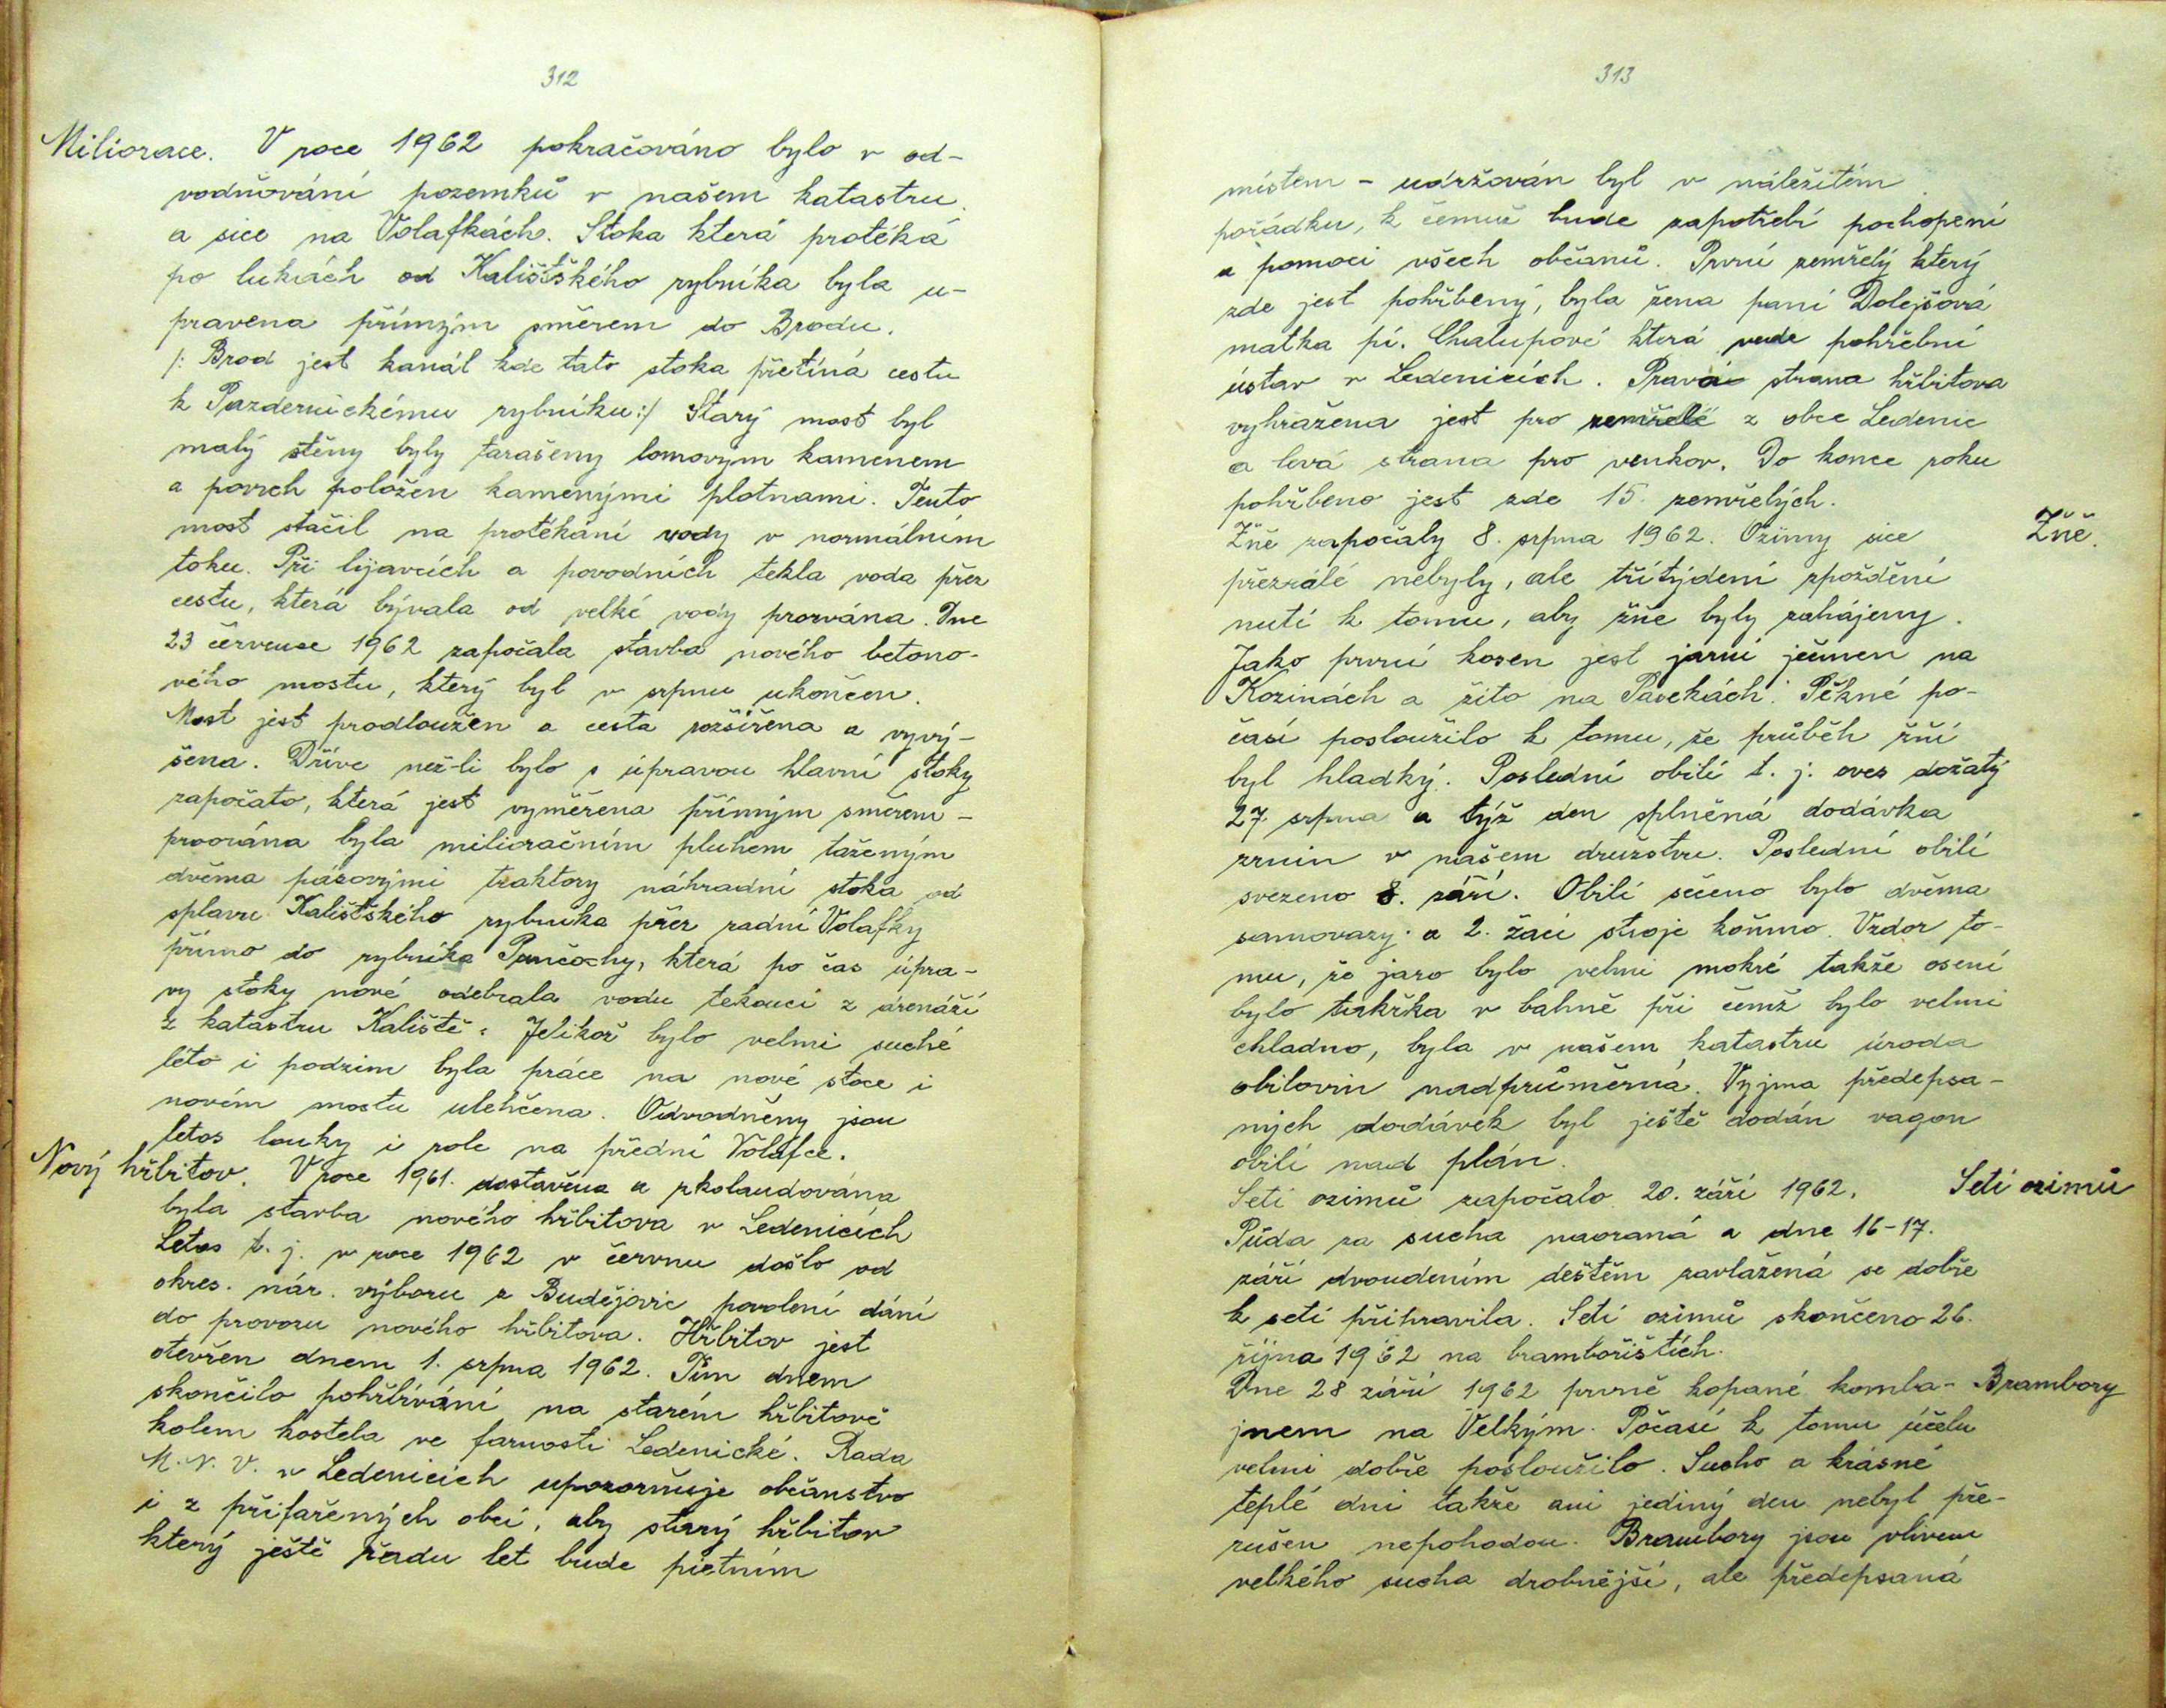 312
Miliorace. V roce 1962 pokračováno bylo v od-
vodňování pozemků v našem katastru
a sice na Volafkách. Stoka která protéká
po lukách od Kališťského rybníka byla u-
pravena přímým směrem do Brodu.
/: Brod jest kanál kde tato stoka přetíná cestu
k Pazdernickému rybníku:/ Starý most byl
malý stěny byly tarašeny lomovým kamenem
a povrch položen kamenými plotnami. Tento
most stačil na protékání vody v normálním
toku. Při lijavcích a povodních tekla voda přez
cestu, která bývala od velké vody prorvána. Dne
23 července 1962 započala stavba nového betono-
vého mostu, který byl v srpnu ukončen.
Most jest prodloužen a cesta rozšířena a vyvý-
šena. Dříve než-li bylo s úpravou hlavní stoky
započato, která jest vyměřena přímým směrem -
proorána byla melioračním pluhem taženým
dvěma pásovými traktory náhradní stoka od
splavu Kališťského rybníka přez zadní Volafky
přímo do rybníka Punčochy, která po čas úpra-
vy stoky nové odebrala vodu tekoucí z drenáží
z katastru Kaliště. Jelikož bylo velmi suché
léto i podzim byla práce na nové stoce i
novém mostu ulehčena. Odvodněny jsou
letos louky i role na přední Volafce.
Nový hřbitov. V roce 1961. dostavěna a zkolaudována
byla stavba nového hřbitova v Ledenicích
Letos t. j. v roce 1962 v červnu došlo od
okres. nár. výboru z Budějovic povolení dání
do provozu nového hřbitova. Hřbitov jest
otevřen dnem 1. srpna 1962. Tím dnem
skončilo pohřbívání na starém hřbitově
kolem kostela ve farnosti Ledenické. Rada
M. N. V. v Ledenicích upozorňuje občanstvo
i z přifařených obcí, aby starý hřbitov
který ještě řadu let bude pietním
313
místem - udržován byl v náležitém
pořádku, k čemuž bude zapotřebí pochopení
a pomoci všech občanů. První zemřelý který
zde jest pohřbený, byla žena paní Dolejšová
matka pí. Chalupové která vede pohřební
ústav v Ledenicích. Pravá strana hřbitova
vyhražena jest pro zemřelé z obce Ledenic
a levá strana pro venkov. Do konce roku
pohřbeno jest zde 15. zemřelých.
Žně započaly 8. srpna 1962. Ozimy sice
Žně.
přezrálé nebyly, ale třítýdení zpoždění
nutí k tomu, aby žně byly zahájeny.
Jako první kosen jest jarní ječmen na
Kozinách a žito na Pasekách. Pěkné po-
časí posloužilo k tomu, že průběh žní
byl hladký. Poslední obilí t. j. oves dožatý
27. srpna a týž den splněná dodávka
zrnin v našem družstvu. Poslední obilí
svezeno 8. září. Obilí sečeno bylo dvěma
samovazy a 2. žací stroje koňmo. Vzdor to-
mu, že jaro bylo velmi mokré takže osení
bylo takřka v bahně při čemž bylo velmi
chladno, byla v našem katastru úroda
obilovin nadprůměrná. Vyjma předepsa-
ných dodávek byl ještě dodán vagon
obilí nad plán.
Setí ozimů započalo 20. září 1962.
Setí ozimů
Půda za sucha naoraná a dne 16-17.
září dvoudením deštěm zavlažená se dobře
k setí připravila. Setí ozimů skončeno 26.
října 1962 na bramborištích.
Dne 28 září 1962 prvně kopané komba-
Brambory
jnem na Velkým. Počasí k tomu účelu
velmi dobře posloužilo. Sucho a krásné
teplé dni takže ani jediný den nebyl pře-
rušen nepohodou. Brambory jsou vlivem
velkého sucha drobnější, ale předepsaná